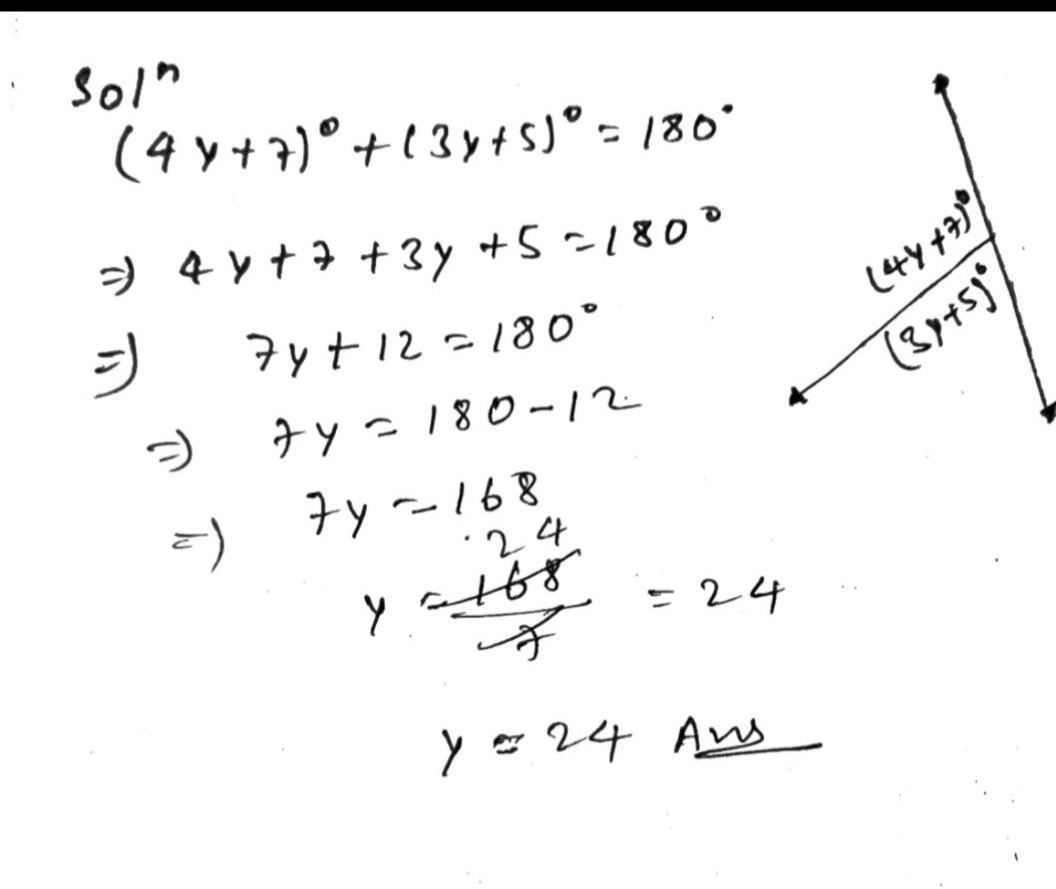 Solⁿ
(4y+7)° + (3y+5)° = 180°
⇒ 4y+7+3y+5=180°
⇒ 7y+12=180°
⇒ 7y=180-12
⇒ 7y=168
24
y=168/7 = 24
y=24 Ans
(4y+7)°
(3y+5)°